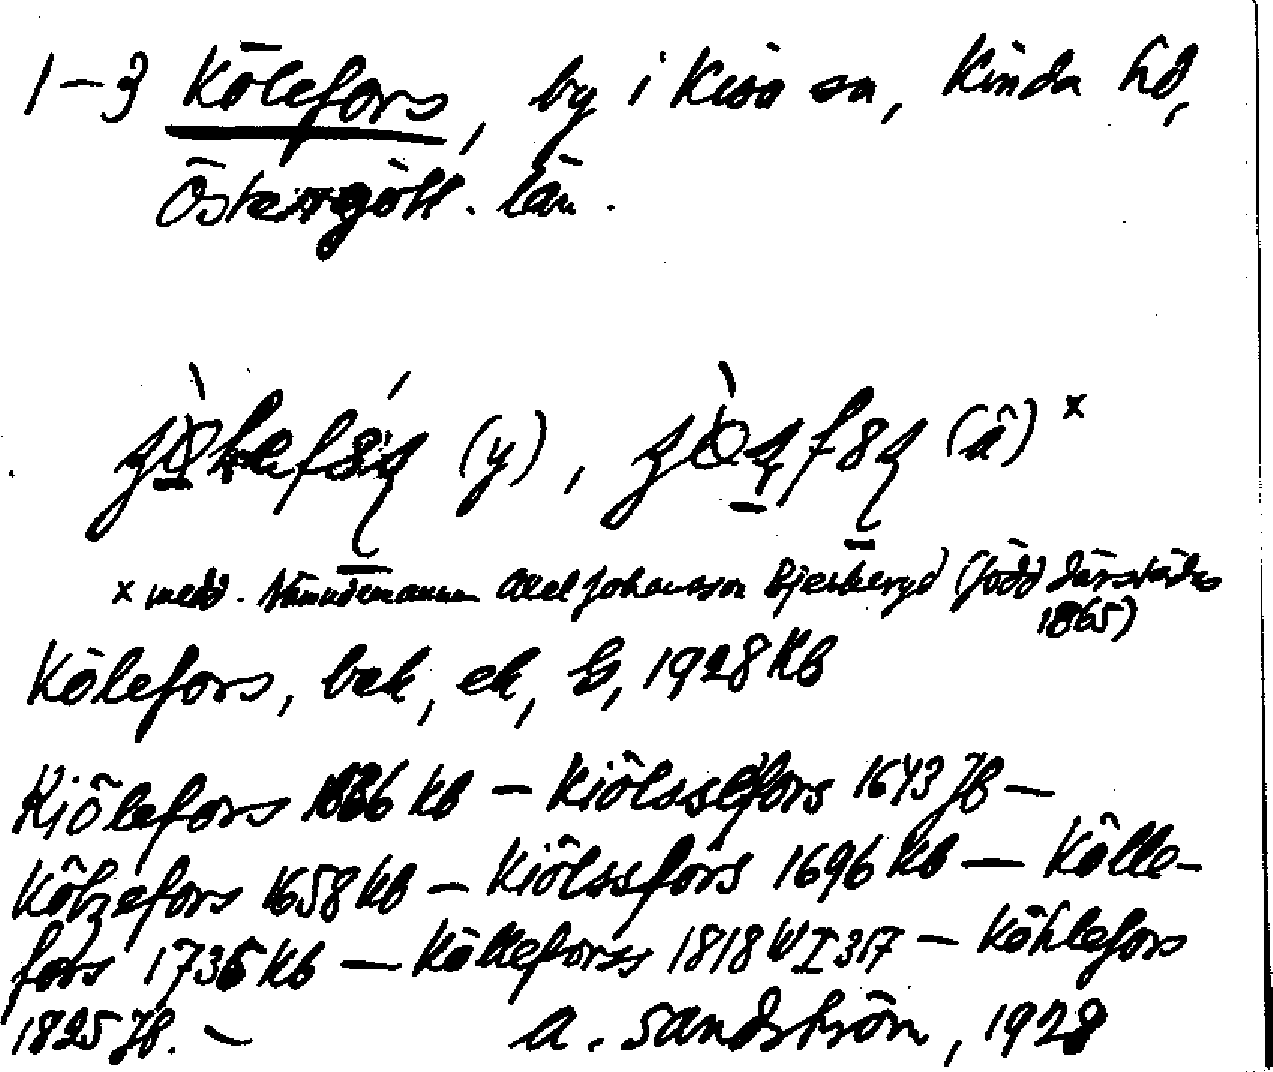 1-3 Kölefors, by i Kisa sn, Kinda hd,
Östergötl. län.
(y), (ä) x
x medd. Nämndemannen Axel Johansson Bjerkeryd (född därstädes
1865)
Kölefors, bek, ek, 1928 Kb
Kiölefors 1636 Kb - Kiölssefors 1643 Jb -
Kölzefors 1658 Kb - Kiölssfors 1696 Kb - Kölle-
fors 1735 Kb - Kölleforss 1818 W I 317 - Köhlefors
1825 Jb. -
A. Sandström, 1928